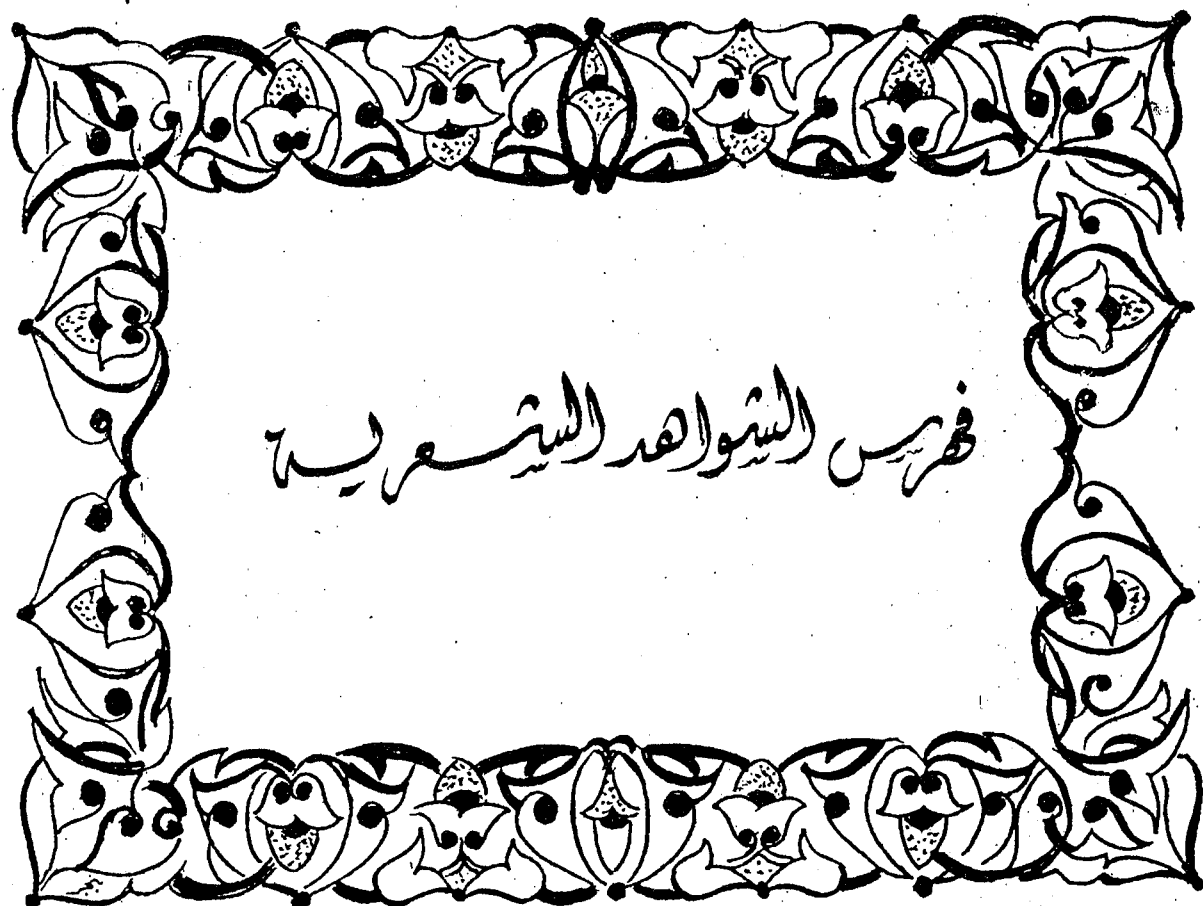 فهرس الشواهد الشعرية